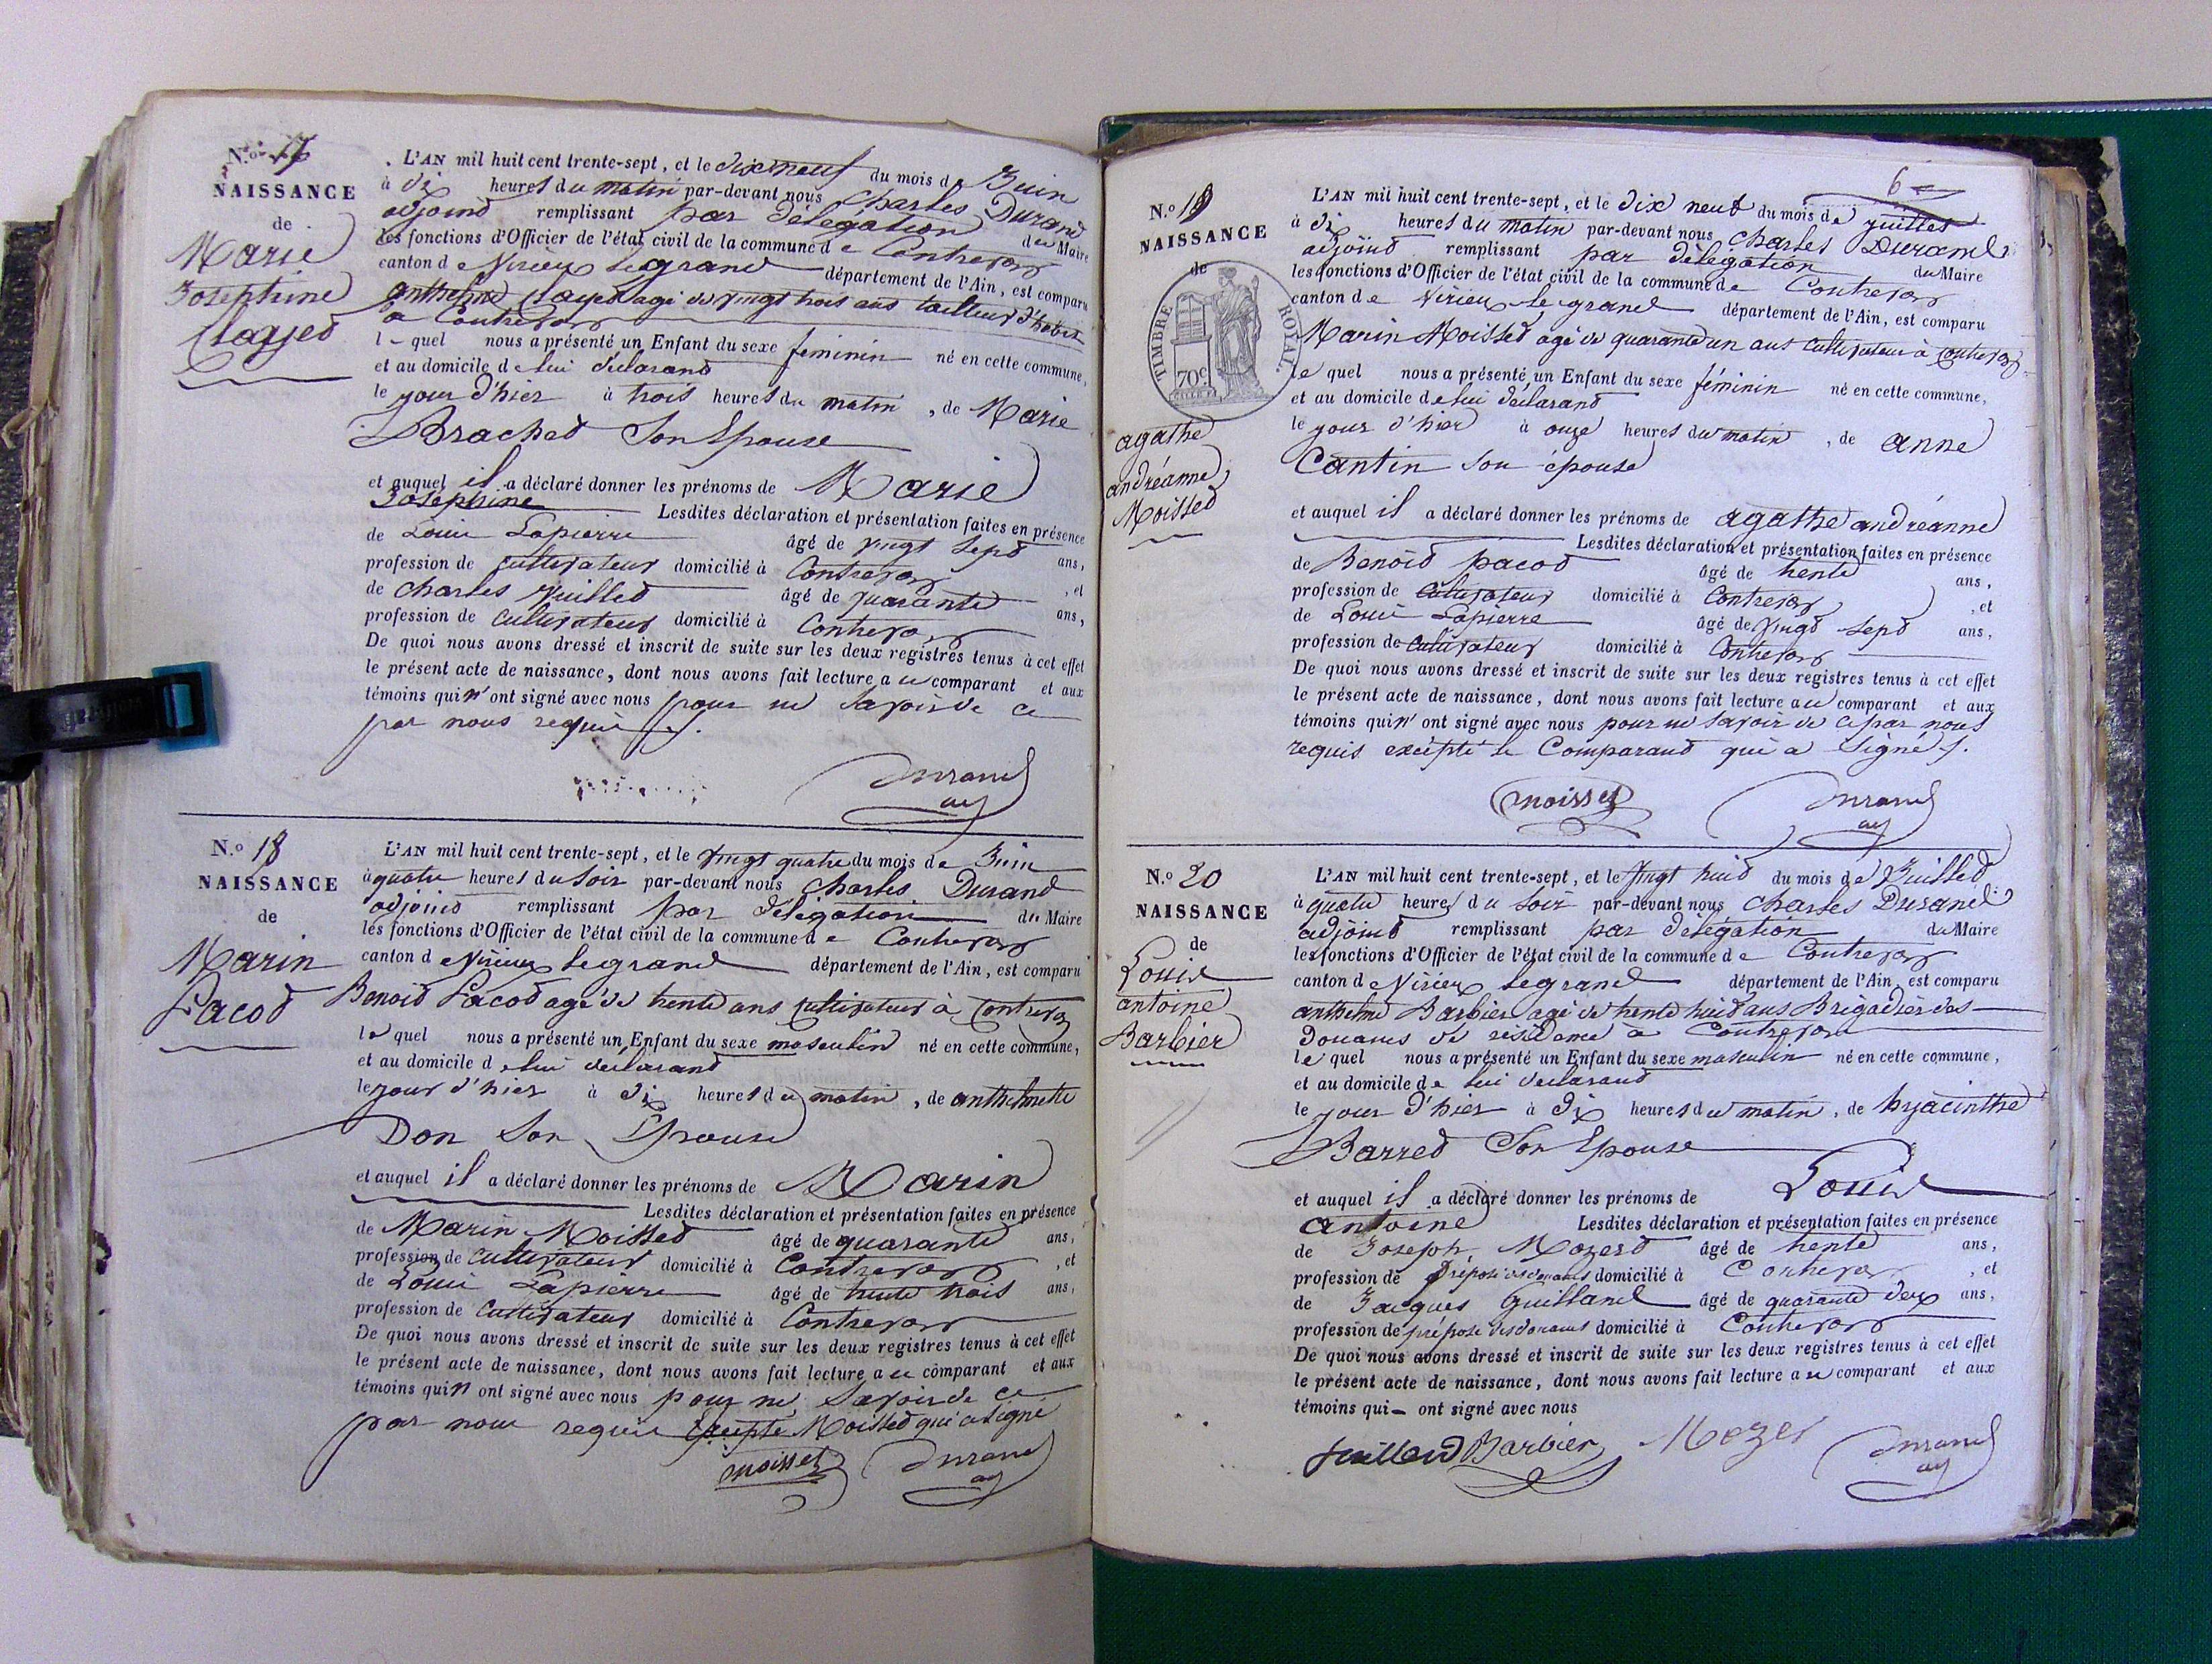 N.o 17
NAISSANCE
de
Marie
Josephine
Clayjed
L'AN mil huit cent trente-sept, et le dix neuf du mois de Juin
à dix heures du matin par-devant nous Charles Durand
adjoind remplissant par délégation du Maire
les fonctions d'Officier de l'état civil de la commune de Contrevoz
canton de Virieu legrand département de l'Ain, est comparu
anthelme Clayed agé de vingt trois ans tailleur d'habit
a Contrevoz
l-quel nous a présenté un Enfant du sexe feminin né en cette commune,
et au domicile de lui déclarand
le jour d'hier à trois heures du matin, de Marie
Brached Son Epouse
et auquel il a déclaré donner les prénoms de Marie
Josephine Lesdites déclaration et présentation faites en présence
de Louis Lapierre âgé de vingt Sept ans,
profession de cultivateur domicilié à Contrevoz, et
de Charles Juilled âgé de quarante ans,
profession de Cultivateur domicilié à Contrevoz
De quoi nous avons dressé et inscrit de suite sur les deux registres tenus à cet effet
le présent acte de naissance, dont nous avons fait lecture au comparant et aux
témoins qui n'ont signé avec nous pour ne Savoir de ce
par nous requis
Durand
adj
N.o 18
NAISSANCE
de
Marin
Pacod
L'AN mil huit cent trente-sept, et le vingt quatre du mois de Juin
à quatre heures du Soir par-devant nous Charles Durand
adjoind remplissant par délégation du Maire
les fonctions d'Officier de l'état civil de la commune de Contrevoz
canton de Virieu legrand département de l'Ain, est comparu
Benoid Pacod agé de trente ans cultivateur à Contrevoz
le quel nous a présenté un Enfant du sexe masculin né en cette commune,
et au domicile de lui declarand
le jour d'hier à dix heures du matin, de anthelmette
Don Son Epouse
et auquel il a déclaré donner les prénoms de Marin
Lesdites déclaration et présentation faites en présence
de Marin Moissed âgé de quarante ans,
profession de cultivateur domicilié à Contrevoz, et
de Louis Lapierre âgé de trente trois ans,
profession de Cultivateur domicilié à Contrevoz
De quoi nous avons dressé et inscrit de suite sur les deux registres tenus à cet effet
le présent acte de naissance, dont nous avons fait lecture au comparant et aux
témoins qui n'ont signé avec nous pour ne Savoir de ce
par nous requis Excepté Moissed qui a Signé
moisset Durand
adj
6
N.o 19
NAISSANCE
de
TIMBRE ROYAL
70c
agathe
andréanne
Moissed
L'AN mil huit cent trente-sept, et le dix neuf du mois de juillet
à dix heures du matin par-devant nous Charles Durand
adjoind remplissant par délégation du Maire
les fonctions d'Officier de l'état civil de la commune de Contrevoz
canton de Virieu le grand département de l'Ain, est comparu
Marin Moissed agé de quarante un ans Cultivateur à Contrevoz
le quel nous a présenté un Enfant du sexe féminin né en cette commune,
et au domicile de lui déclarand
le jour d'hier à onze heures du matin, de anne
Cantin Son épouse
et auquel il a déclaré donner les prénoms de agathe andréanne
Lesdites déclaration et présentation faites en présence
de Benoid pacod âgé de trente ans,
profession de cultivateur domicilié à Contrevoz, et
de Louis Lapierre âgé de vingt Sept ans,
profession de cultivateur domicilié à Contrevoz
De quoi nous avons dressé et inscrit de suite sur les deux registres tenus à cet effet
le présent acte de naissance, dont nous avons fait lecture au comparant et aux
témoins qui n'ont signé avec nous pour ne Savoir de ce par nous
requis excepté le Comparand qui a Signé
moisset Durand
adj
N.o 20
NAISSANCE
de
Louis
antoine
Barbier
L'AN mil huit cent trente-sept, et le vingt huid du mois de Juilled
à quatre heures du Soir par-devant nous Charles Durand
adjoind remplissant par délégation du Maire
les fonctions d'Officier de l'état civil de la commune de Contrevoz
canton de Virieu legrand département de l'Ain, est comparu
anthelme Barbier agé de trente huid ans Brigadier des
Douanes de résidence à Contrevoz
le quel nous a présenté un Enfant du sexe masculin né en cette commune,
et au domicile de lui declarand
le jour d'hier à dix heures du matin, de hyacinthe
Barred Son Epouse
et auquel il a déclaré donner les prénoms de Louis
antoine Lesdites déclaration et présentation faites en présence
de Joseph Mozerd âgé de trente ans,
profession de préposé des douanes domicilié à Contrevoz, et
de Jacques Guilland âgé de quarante deux ans,
profession de préposé des douanes domicilié à Contrevoz
De quoi nous avons dressé et inscrit de suite sur les deux registres tenus à cet effet
le présent acte de naissance, dont nous avons fait lecture au comparant et aux
témoins qui - ont signé avec nous
Barbier Mozer Durand
adj